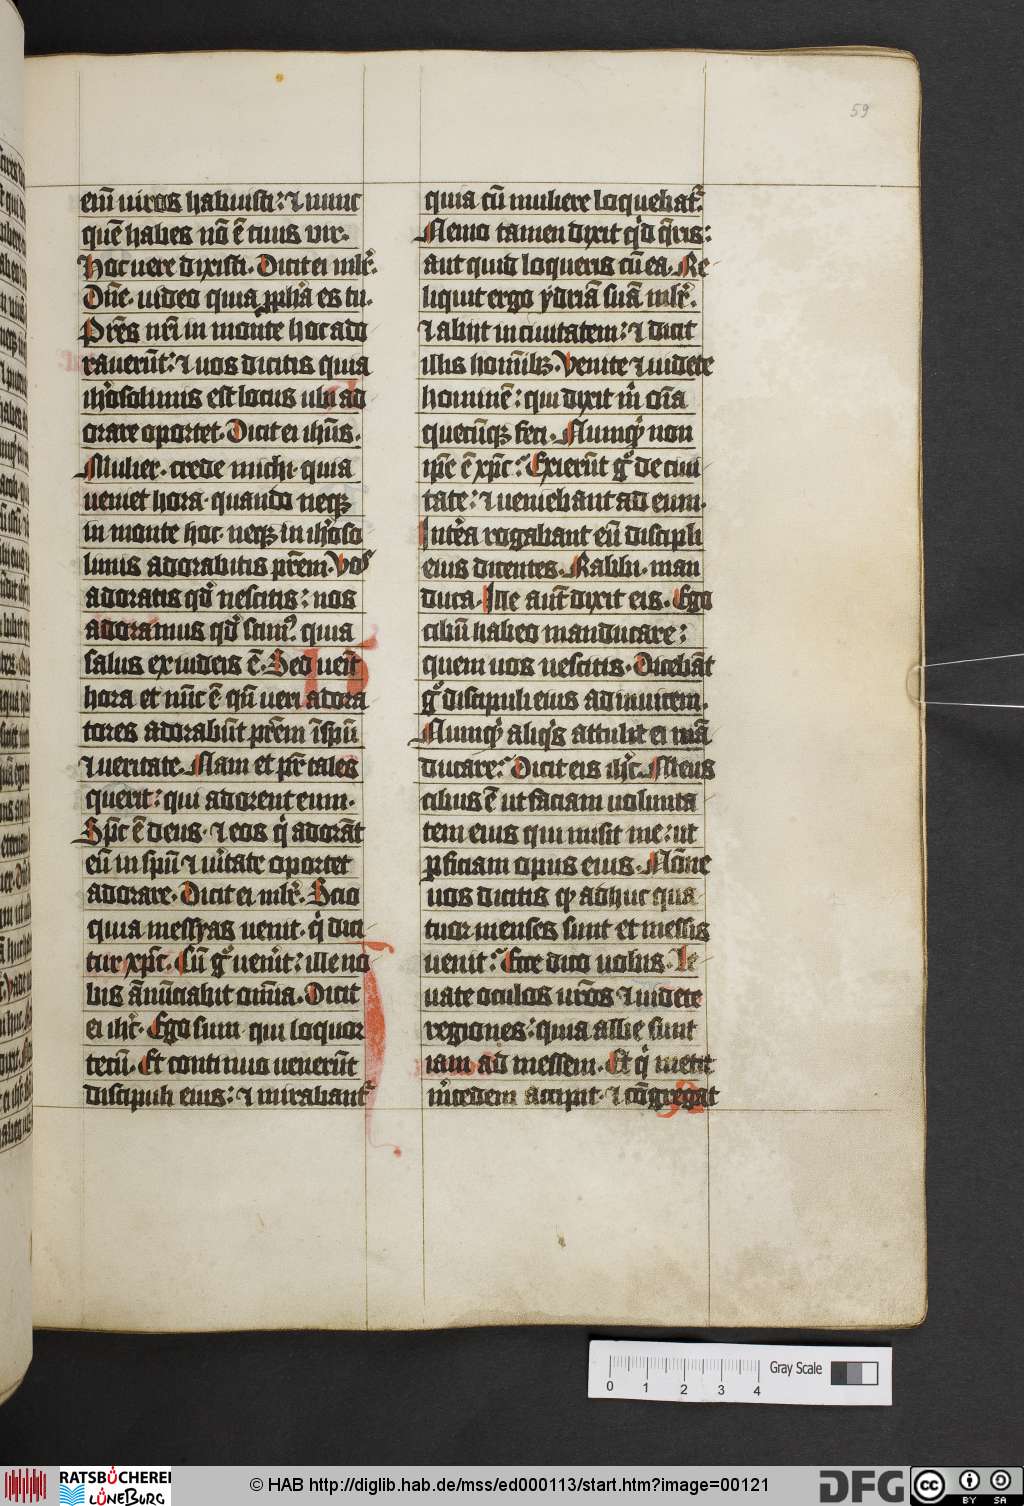 59
eni̅ uiros habuisti: ⁊ nunc
que̅ habes no̅ e̅ tuus vir.
Hoc uere dixisti. Dicit ei ml̅r.
Dn̅e. uideo quia ꝓph̅a es tu.
Pr̅es nr̅i in monte hoc ado
raueru̅t: ⁊ uos dicitis quia
ih̅osolimis est locus ubi ad
orare oportet. Dicit ei ihu̅s.
Mulier. crede michi quia
ueniet hora. quando neqꝫ
in monte hoc. neqꝫ in ih̅oso
limis adorabitis pr̅em. Vos
adoratis qd̅ nescitis: nos
adoramus qd̅ scim⁹. quia
salus ex iudeis e̅. Sed ueni̅t
hora et nu̅c e̅ qn̅ ueri adora
tores adorabu̅t pr̅em i̅ spu̅
⁊ ueritate. Nam et pr̅ tales
querit: qui adorent eum.
Sp̅c e̅ deus. ⁊ eos q̍ adora̅t
eu̅ in spu̅ ⁊ u̅itate oportet
adorare. Dicit ei ml̅r. Scio
quia messyas uenit. q̍ dici
tur xp̅c. Cu̅ g̊ uen̅it: ille no
bis a̅nu̅ciabit om̅ia. Dicit
ei ih̅c. Ego sum qui loquor
tecu̅. Et continuo ueneru̅t
discipuli eius: ⁊ mirabant᷑
quia cu̅ muliere loquebat᷑.
Nemo tamen dixit qd̅ q̅ris:
aut quid loqueris cu̅ ea. Re
liquit ergo ydria̅ sua̅ ml̅r.
⁊ abijt in ciuitatem: ⁊ dicit
illis homi̅ibꝫ. Venite ⁊ uidete
homine̅: qui dixit m̍ om̅ia
quecu̅qꝫ feci. Numqͥ non
ip̅e e̅ xp̅c: Exieru̅t g̊ de ciui
tate: ⁊ ueniebant ad eum.
Int̅ea rogabant eu̅ discipli
eius dicentes. Rabbi. man
duca. Ille aut̅ dixit eis. Ego
cibu̅ habeo manducare:
quem uos nescitis. Diceba̅t
g̊ discipuli eius adinuicem.
Numqͥ aliqͥs attulit ei ma̅
ducare: Dicit eis ih̅c. Meus
cibus e̅ ut faciam uolunta
tem eius qui misit me: ut
ꝑficiam opus eius. No̅ne
uos dicitis qꝫ adhuc qua
tuor menses sunt et messis
uenit: Ecce dico uobis. Le
uate oculos ur̅os ⁊ uidete
regiones: quia albe sunt
iam ad messem. Et q̍ metit
m̅cedem accipit. ⁊ co̅gregat
0 1 2 3 4
Gray Scale
RATSBÜCHEREI
LÜNEBURG
© HAB http://diglib.hab.de/mss/ed000113/start.htm?image=00121
DFG
cc BY SA